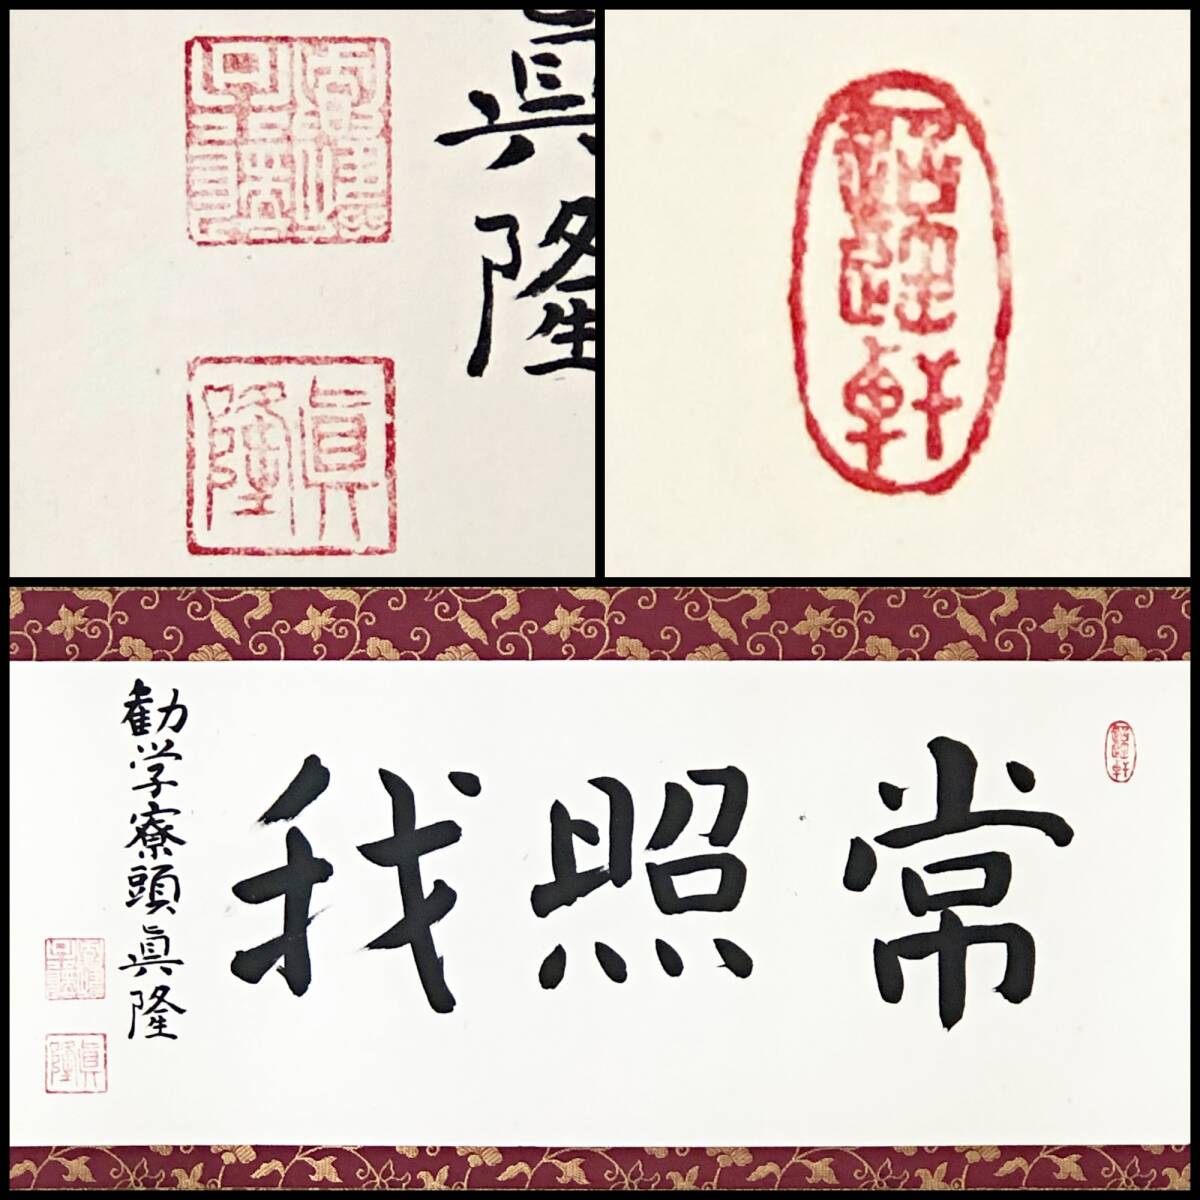 眞隆
眞隆
常照我
勧学寮頭眞隆
眞隆